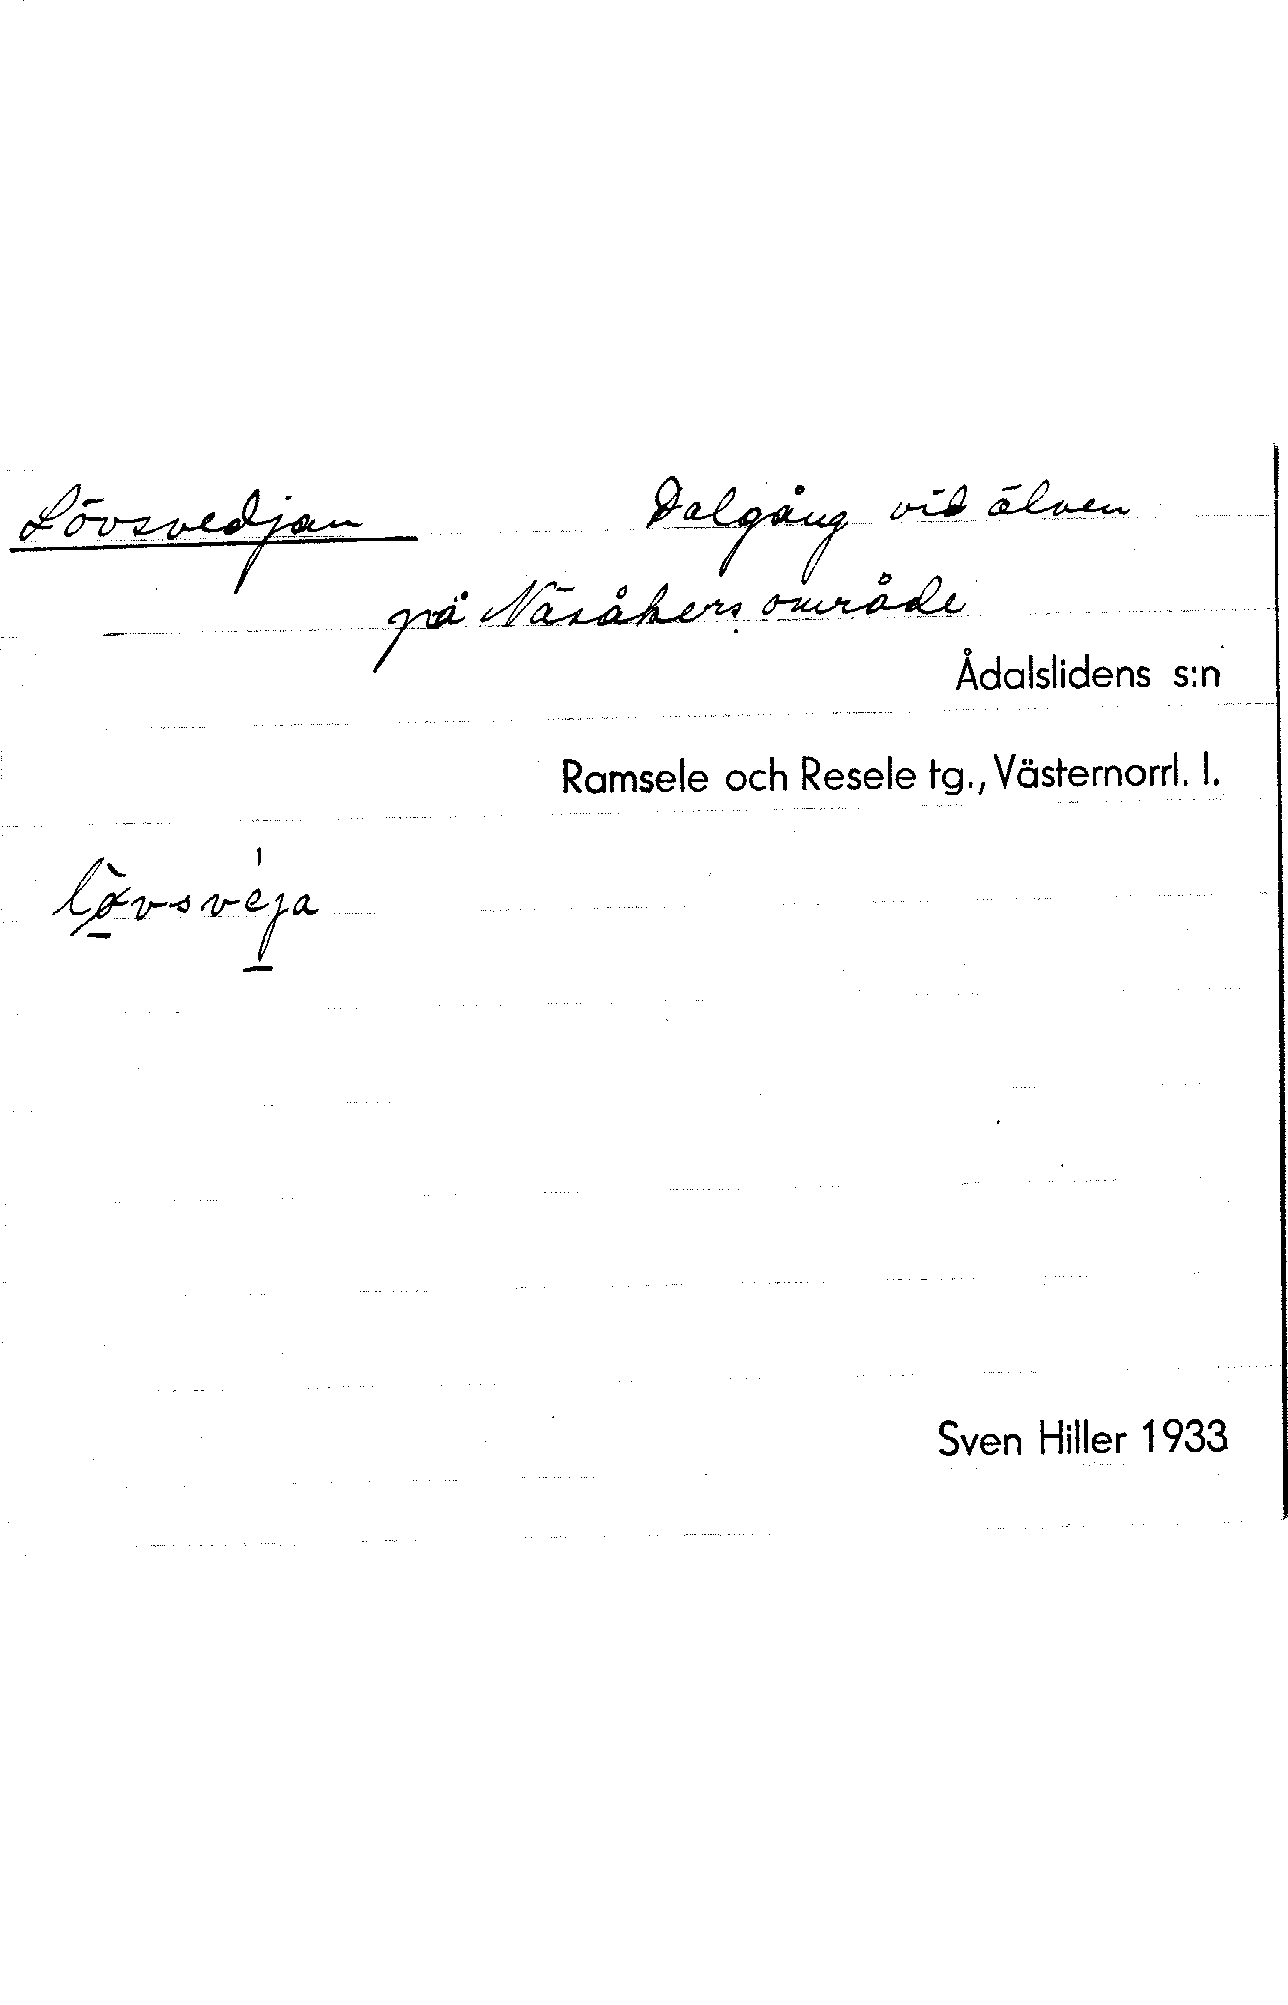 Lövsvedjan Dalgång vid älven
på Näsåkers område
Ådalslidens s:n
Ramsele och Resele tg., Västernorrl. l.
lø̀vsvéja
Sven Hiller 1933